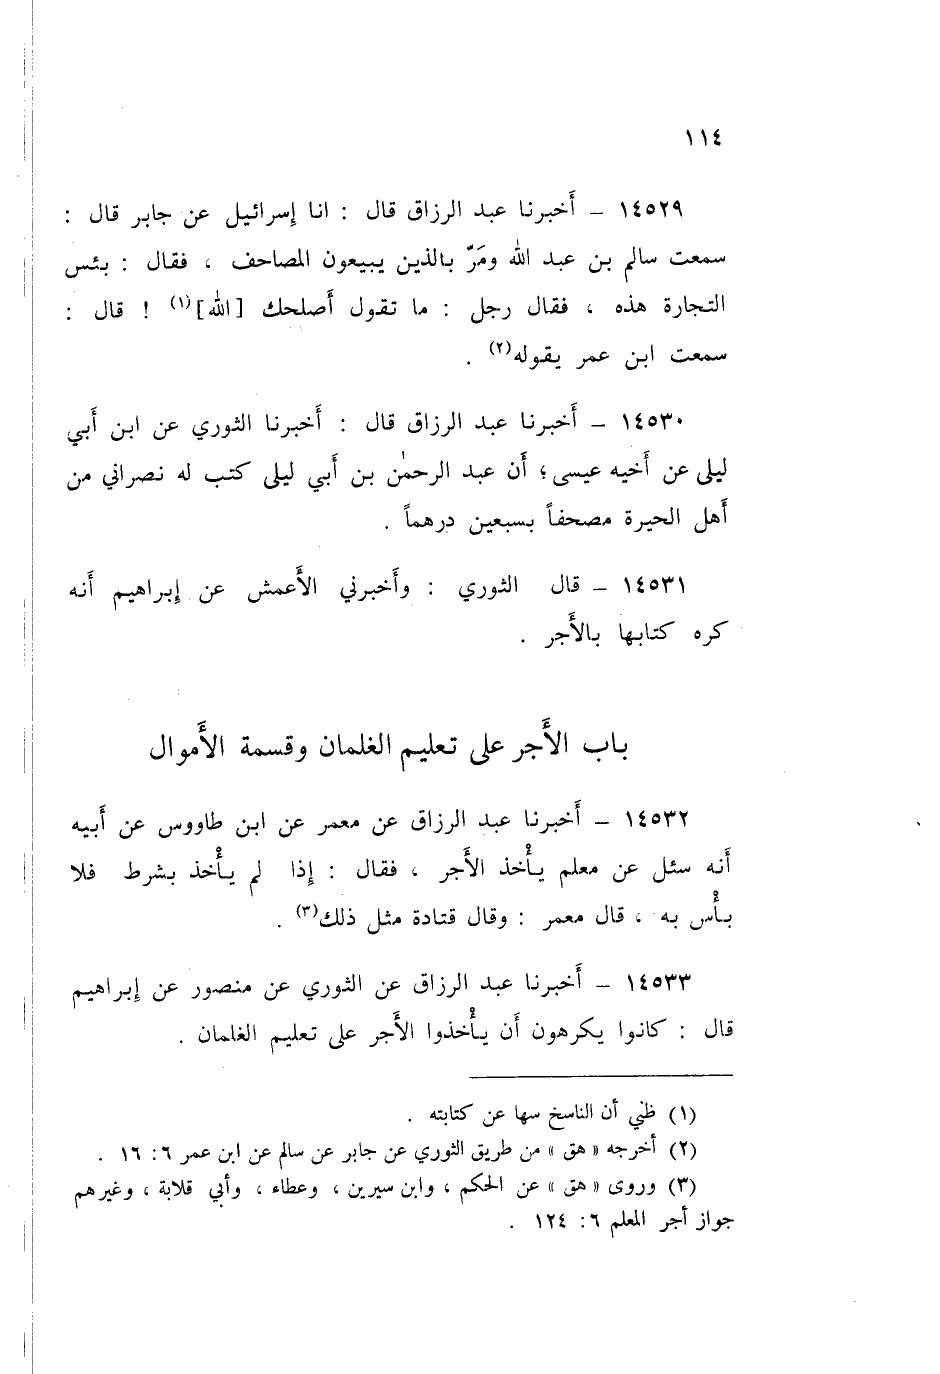 ١١٤
١٤٥٢٩ – أَخبرنا عبد الرزاق قال : انا إِسرائيل عن جابر قال :
سمعت سالم بن عبد الله ومَرّ بالذين يبيعون المصاحف ، فقال : بئس
التجارة هذه ، فقال رجل : ما تقول أَصلحك [الله](١) ! قال :
سمعت ابن عمر يقوله(٢) .
١٤٥٣٠ – أَخبرنا عبد الرزاق قال : أَخبرنا الثوري عن ابن أَبي
ليلى عن أَخيه عيسى؛ أَن عبد الرحمٰن بن أَبي ليلى كتب له نصراني من
أَهل الحيرة مصحفاً بسبعين درهماً .
١٤٥٣١ – قال الثوري : وأَخبرني الأَعمش عن إِبراهيم أَنه
كره كتابها بالأَجر .
باب الأَجر على تعليم الغلمان وقسمة الأَموال
١٤٥٣٢ – أَخبرنا عبد الرزاق عن معمر عن ابن طاووس عن أَبيه
أَنه سئل عن معلم يأْخذ الأَجر ، فقال : إِذا لم يأْخذ بشرط فلا
بأْس به ، قال معمر : وقال قتادة مثل ذلك(٣) .
١٤٥٣٣ – أَخبرنا عبد الرزاق عن الثوري عن منصور عن إِبراهيم
قال : كانوا يكرهون أَن يأْخذوا الأَجر على تعليم الغلمان .
(١) ظني أن الناسخ سها عن كتابته .
(٢) أخرجه « هق » من طريق الثوري عن جابر عن سالم عن ابن عمر ٦: ١٦ .
(٣) وروى « هق » عن الحكم ، وابن سيرين ، وعطاء ، وأبي قلابة ، وغيرهم
جواز أجر المعلم ٦: ١٢٤ .